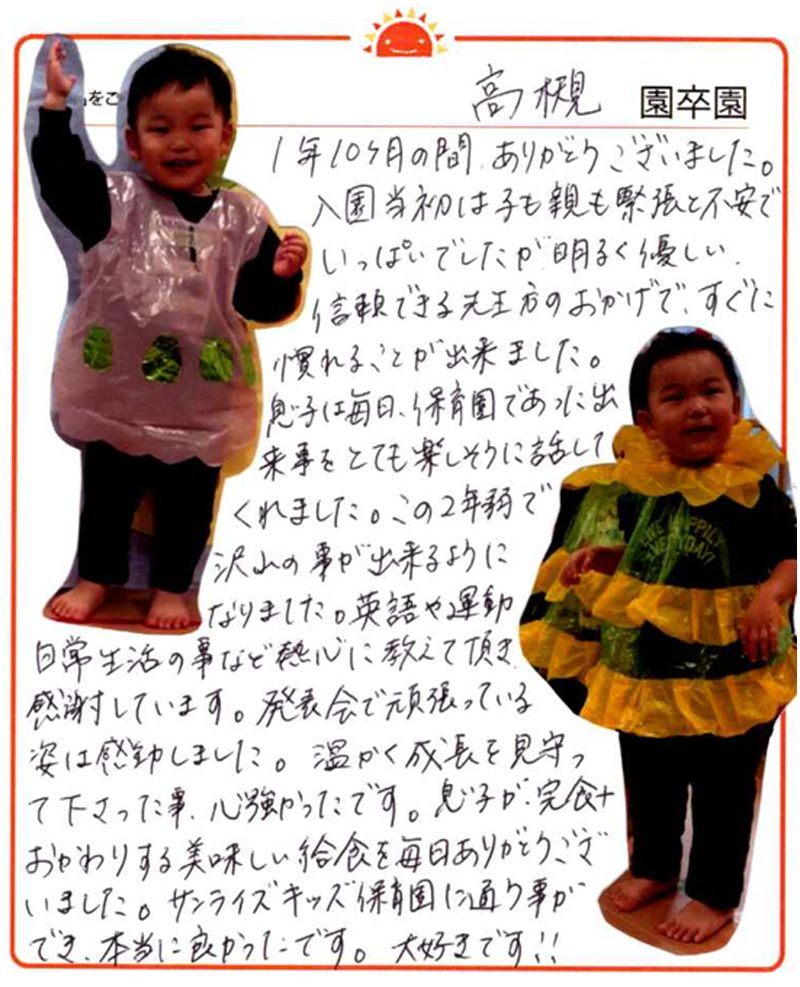 をご
高槻 園卒園
1年10ヶ月の間、ありがとうございました。
入園当初は子も親も緊張と不安で
いっぱいでしたが、明るく優しい、
信頼できる先生方のおかげで、すぐに
慣れることが出来ました。
息子は毎日、保育園であった出
来事をとても楽しそうに話して
くれました。この2年弱で
沢山の事が出来るように
なりました。英語や運動
日常生活の事など熱心に教えて頂き、
感謝しています。発表会で頑張っている
姿は感動しました。温かく成長を見守っ
て下さった事、心強かったです。息子が、完食+
おかわりする美味しい給食を毎日ありがとうござ
いました。サンライズキッズ保育園に通う事が
でき、本当に良かったです。大好きです!!